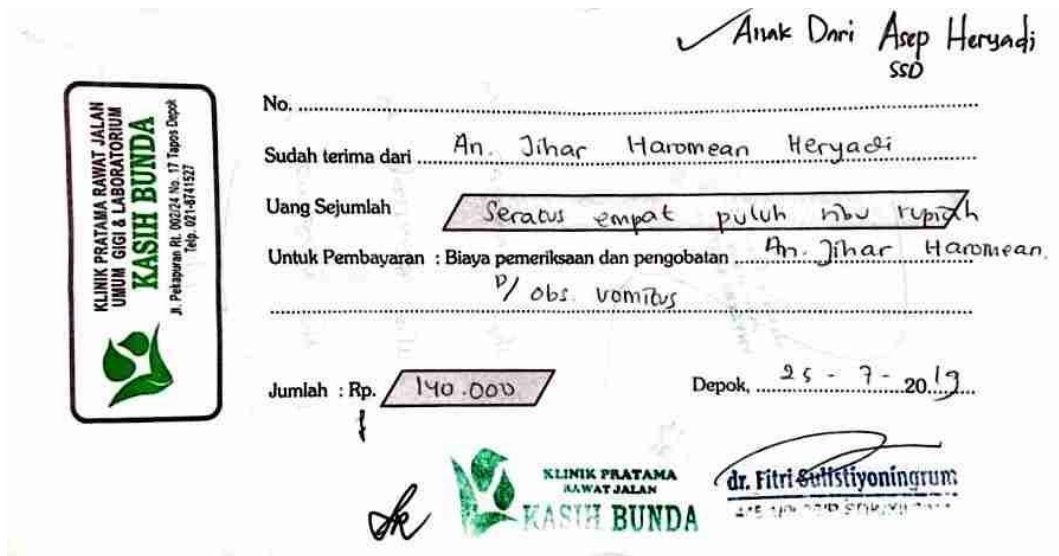 ✓ Anak Dari Asep Heryadi
SSD
KLINIK PRATAMA RAWAT JALAN
UMUM GIGI & LABORATORIUM
KASIH BUNDA
Jl. Pekapuran Rt. 002/24 No. 17 Tapos Depok
Telp. 021-8741527
No.
Sudah terima dari An. Jihar Haromean Heryadi
Uang Sejumlah Seratus empat puluh ribu rupiah
Untuk Pembayaran : Biaya pemeriksaan dan pengobatan An. Jihar Haromean.
D/ obs. vomitus
Jumlah : Rp. 140.000
Depok, 25 - 7 - 2019
KLINIK PRATAMA
RAWAT JALAN
KASIH BUNDA
dr. Fitri Sulistiyoningrum